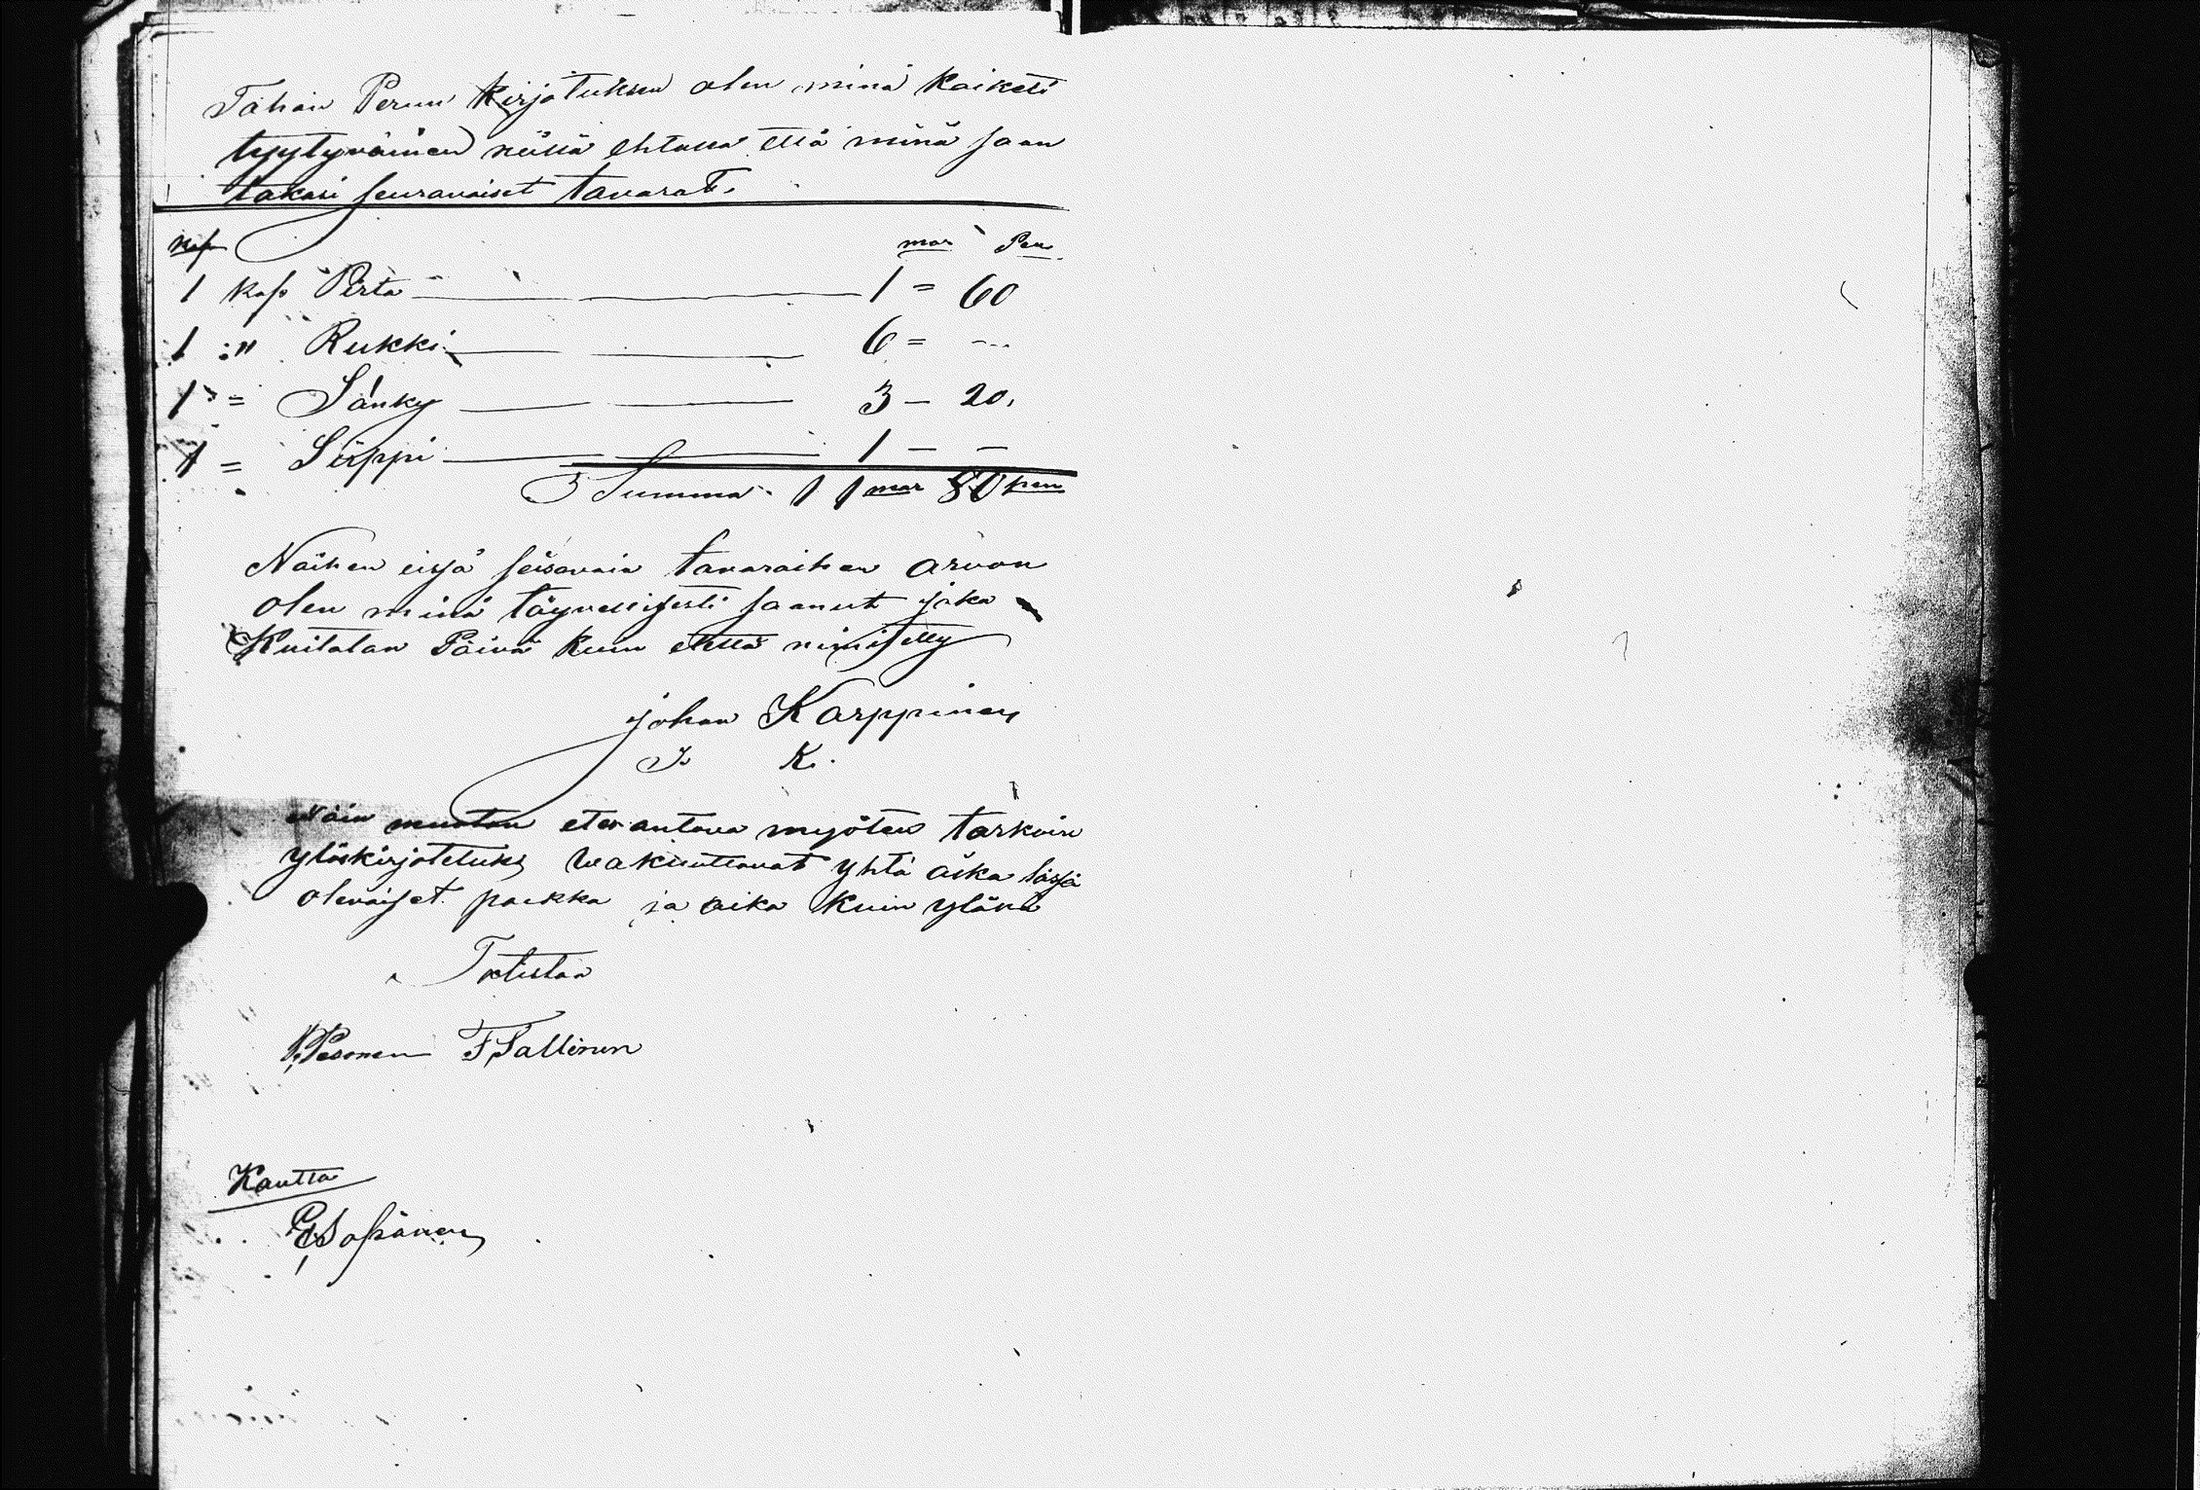 Tähän Perun kirjotuksen olen minä kaiketi
tyytyväinen niissä ehtossa että minä saan
takasi seuravaiset tavarat.
Kap mar Pen
1 kap Pirta 1 = 60
1 :" Rukki 6 = ---
1 = Sänky 3 — 20,
1 = Sirppi 1 — —
Summa 11 mar 80 pen
Näihen eissä seisovain tavaraihen arvon
olen minä täyvellisesti saanut joka
Kuitatan Päivä kuin eillä nimitetty
johan Karppinen
J. K.
Näin muoton eten antava myöten tarkoin
ylöskirjotetuks wakuuttavat yhtä aika läsSä
olevaiset paikka ja aika kuin ylänä
Totistaa
P. Pesonen F. Tallinen
Kautta